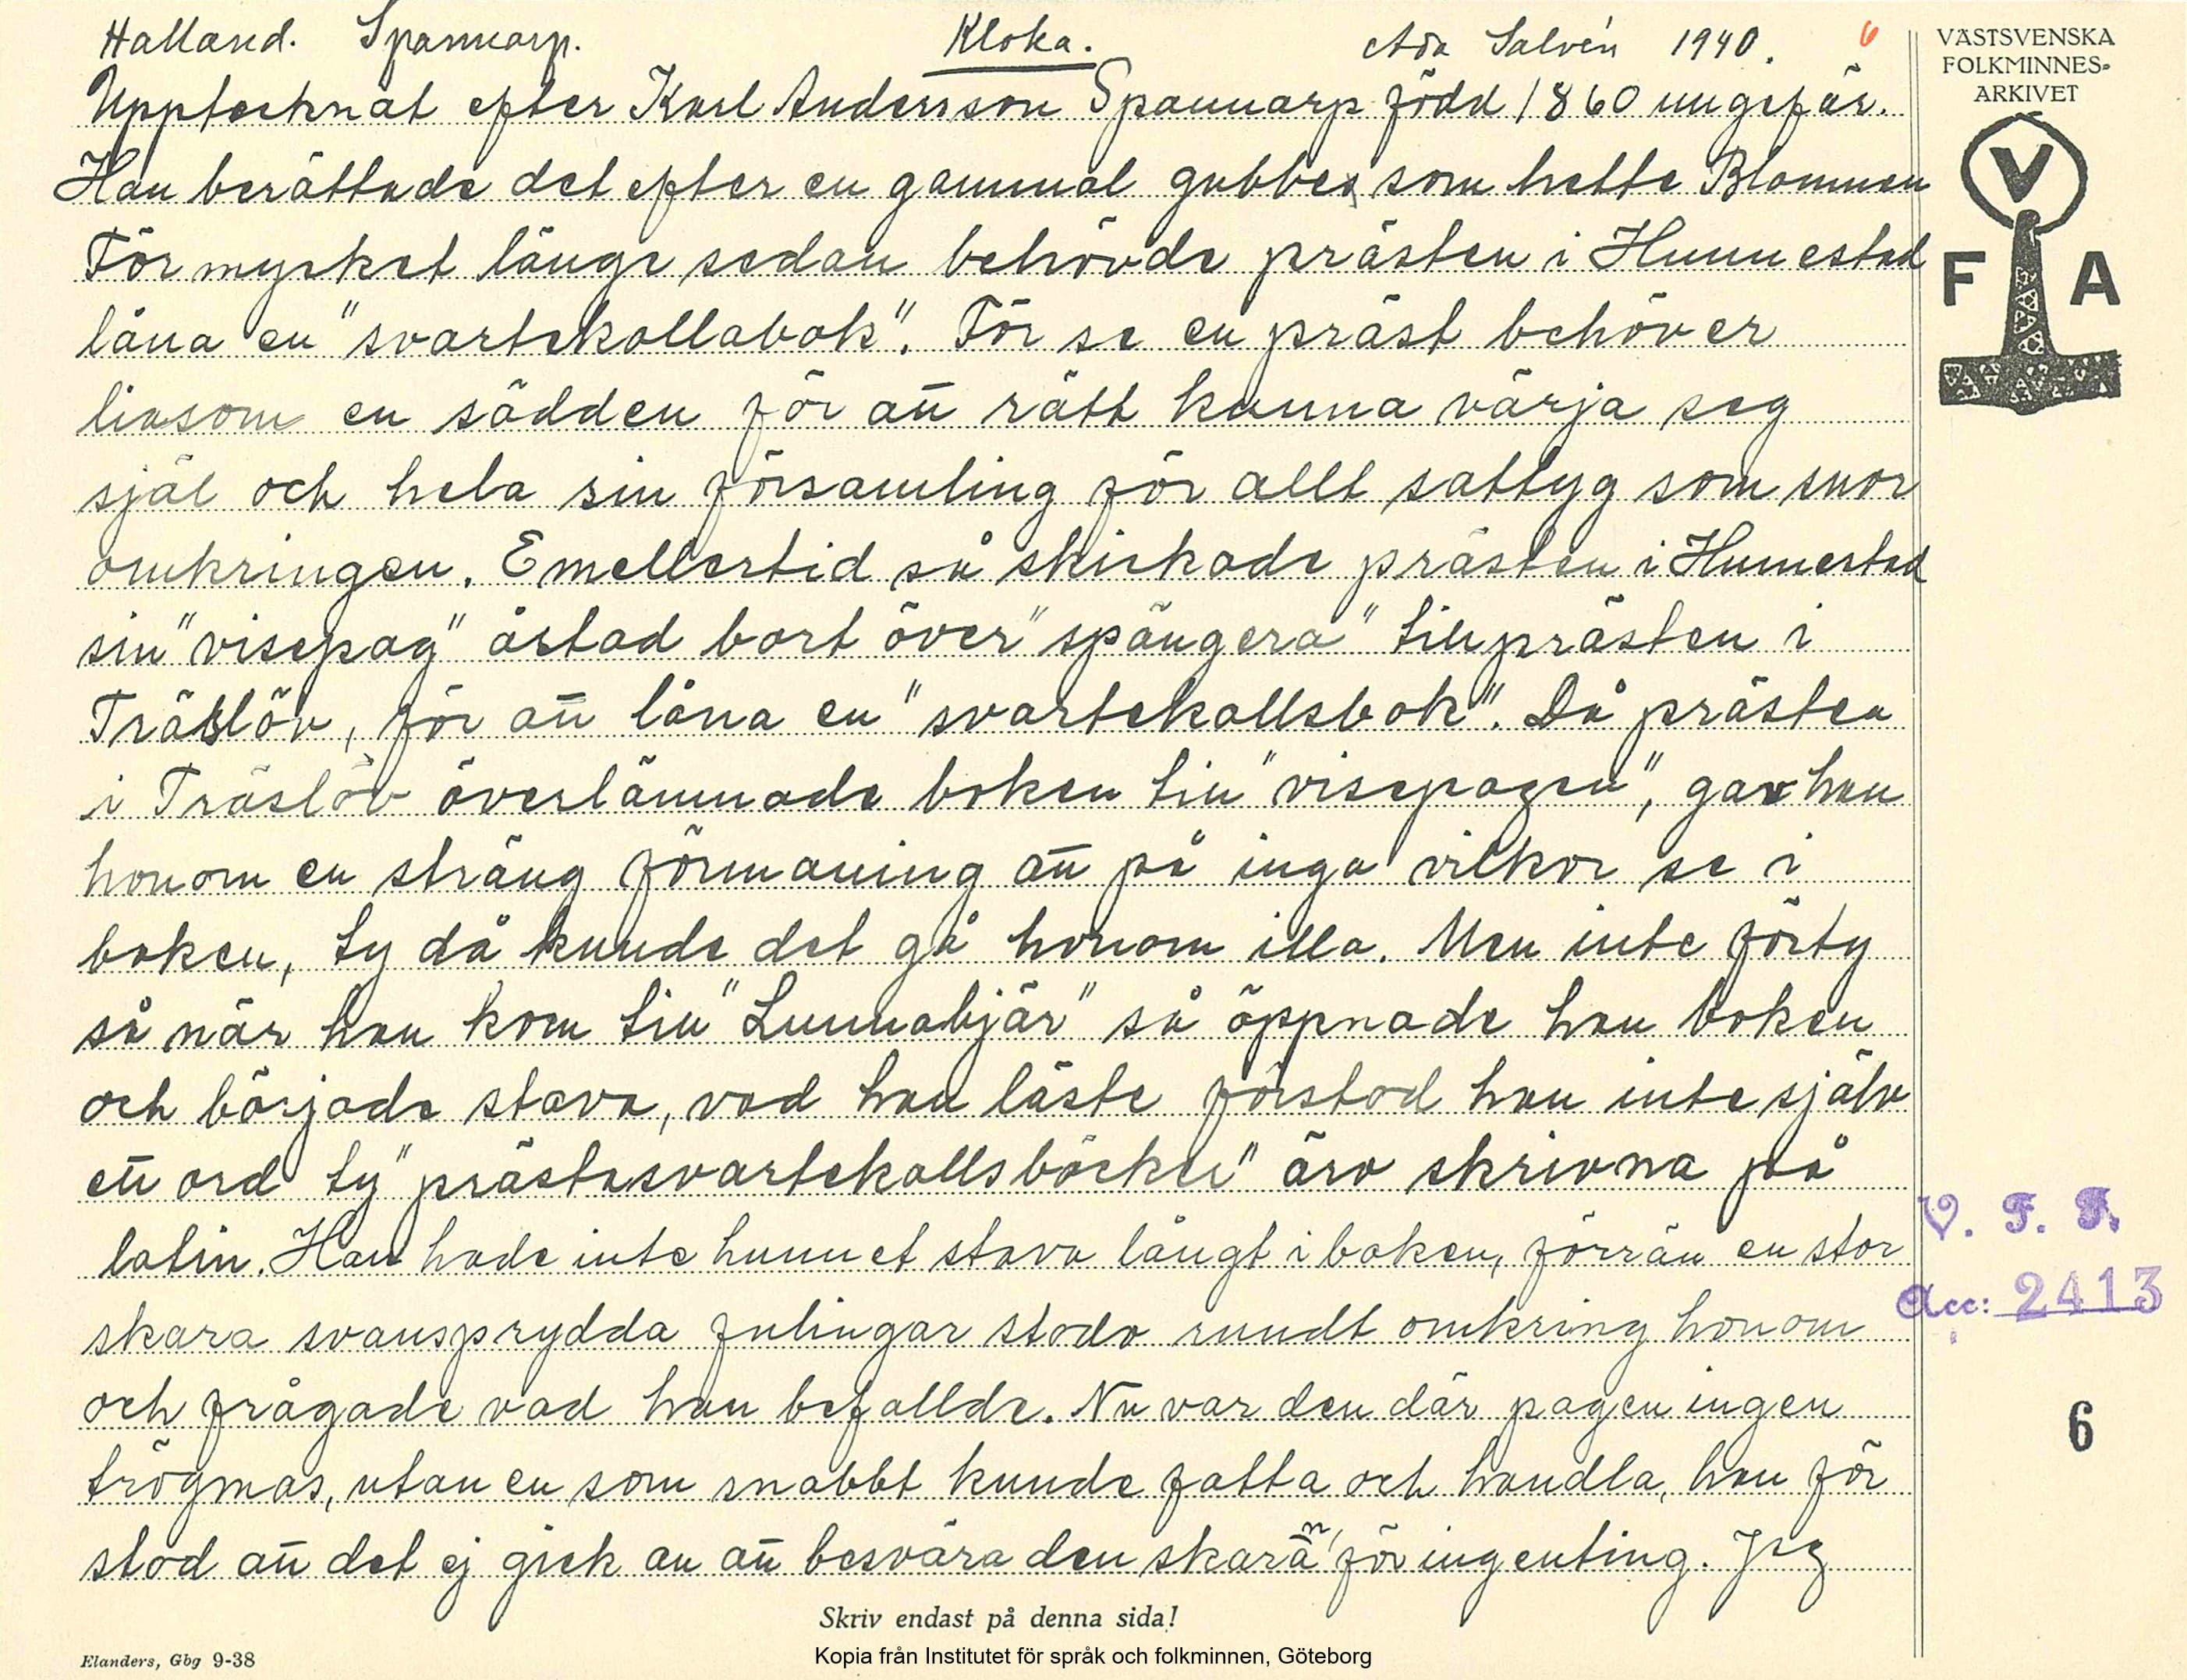 Halland. Spannarp. Kloka. Ada Salvén 1940. 6
Upptecknat efter Karl Andersson Spannarp född 1860 ungefär.
Han berättade det efter en gammal gubbe, som hette Blomman
För mycket länge sedan behövde prästen i Hunnestad
låna en "svartekollabok". För se en präst behöver
liksom en sådden för att rätt kunna värja seg
själ och hela sin församling för allt sattyg som snor
omkringen. Emellertid så skickade prästen i Hunnestad
sin "visepag" åstad bort över "spångera" till prästen i
Träslöv, för att låna en "svartekollsbok". Då prästen
i Träslöv överlämnade boken till "visepagen", gav han
honom en sträng förmaning att på inga vilkor se i
boken, ty då kunde det gå honom illa. Men inte förty
så när han kom till "Lunnabjär" så öppnade han boken
och började stava, vad han läste förstod han inte själv
ett ord ty "prästasvartekollsböcker" äro skrivna på
latin. Han hade inte hunnet stava långt i boken, förrän en stor
skara svansprydda fulingar stodo rundt omkring honom
och frågade vad han befallde. Nu var den där pagen ingen
trögmas, utan en som snabbt kunde fatta och handla, han för
stod att det ej gick an att besvära den skaran för ingenting. Jag
Skriv endast på denna sida!
Elanders, Gbg 9-38
Kopia från Institutet för språk och folkminnen, Göteborg
VÄSTSVENSKA
FOLKMINNES-
ARKIVET
V
F A
V. F. F.
Acc: 2413
6